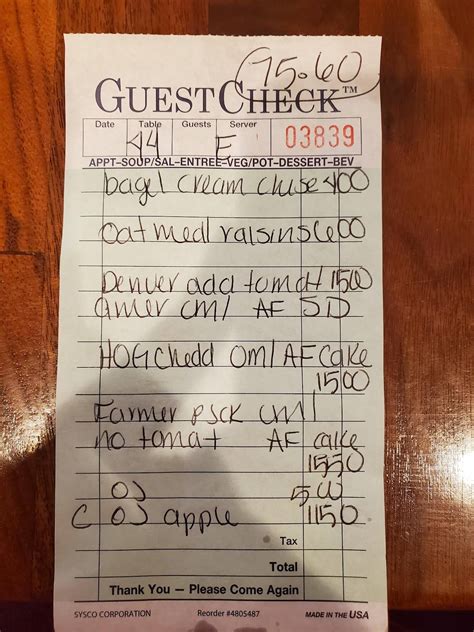 75.60
GUEST CHECK™
Date Table Guests Server
44 F 03839
APPT-SOUP/SAL-ENTREE-VEG/POT-DESSERT-BEV
bagel cream chese 400
oatmeal raisins 600
Denver add tomat 1500
amer oml AF SD
HOG Chedd oml AF cake
1500
Farmer oml
no tomat AF cake
1550
OJ 500
C OJ apple 1150
Tax
Total
Thank You — Please Come Again
SYSCO CORPORATION Reorder #4805487 MADE IN THE USA